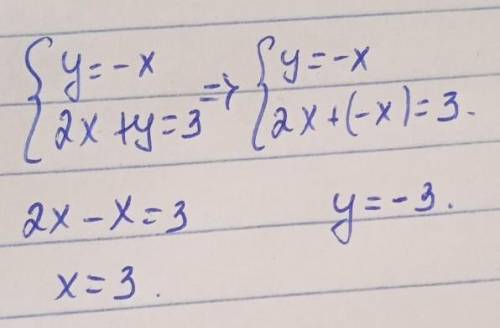 { y = -x => { y = -x
{ 2x + y = 3 { 2x + (-x) = 3.
2x - x = 3 y = -3.
x = 3.